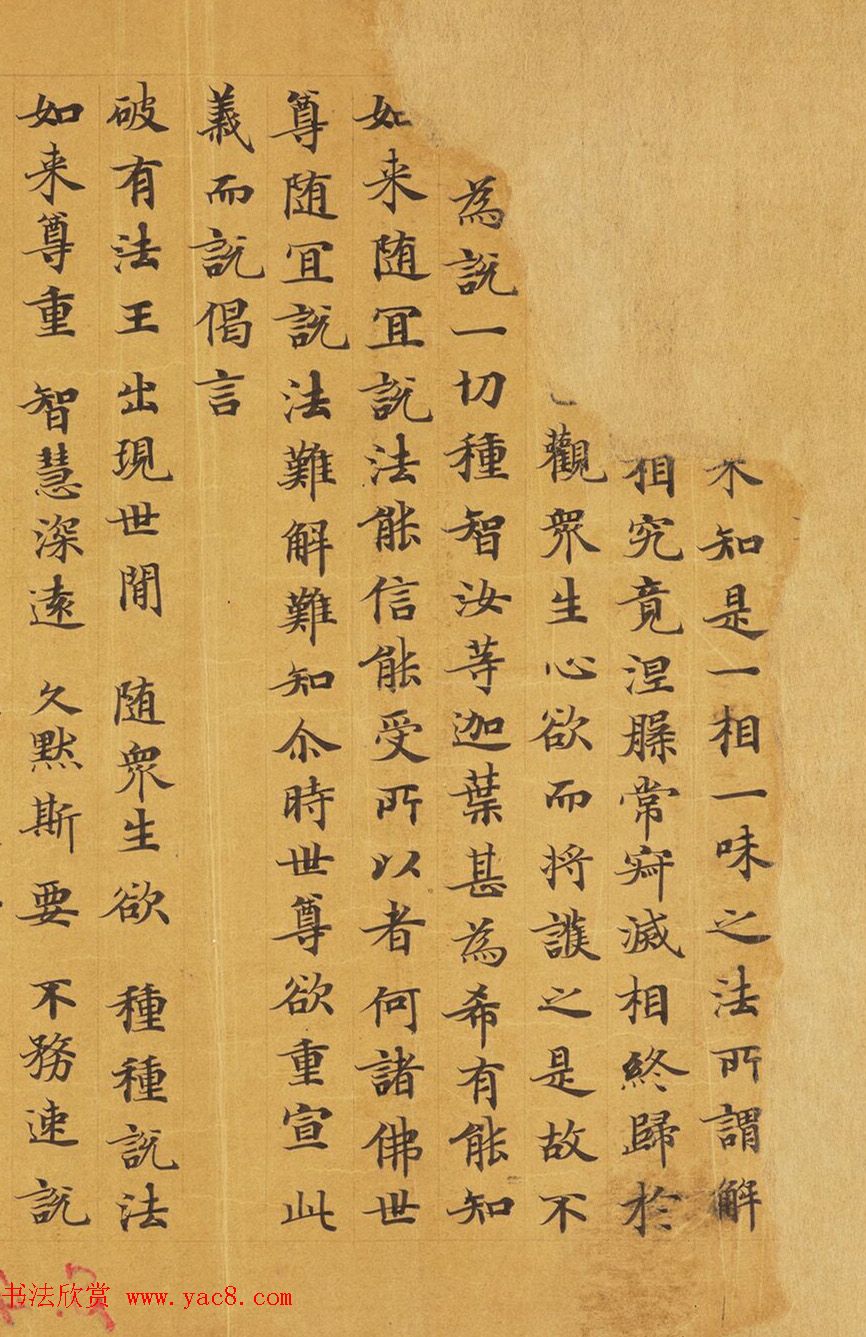 不知是一相一味之法所謂解
相究竟涅槃常寂滅相終歸於
觀眾生心欲而将護之是故不
為說一切種智汝等迦葉甚為希有能知
如来随宜說法能信能受所以者何諸佛世
尊随宜說法難解難知尒時世尊欲重宣此
義而說偈言
破有法王 出現世間 随眾生欲 種種說法
如来尊重 智慧深遠 久默斯要 不務速說
书法欣赏 www.yac8.com